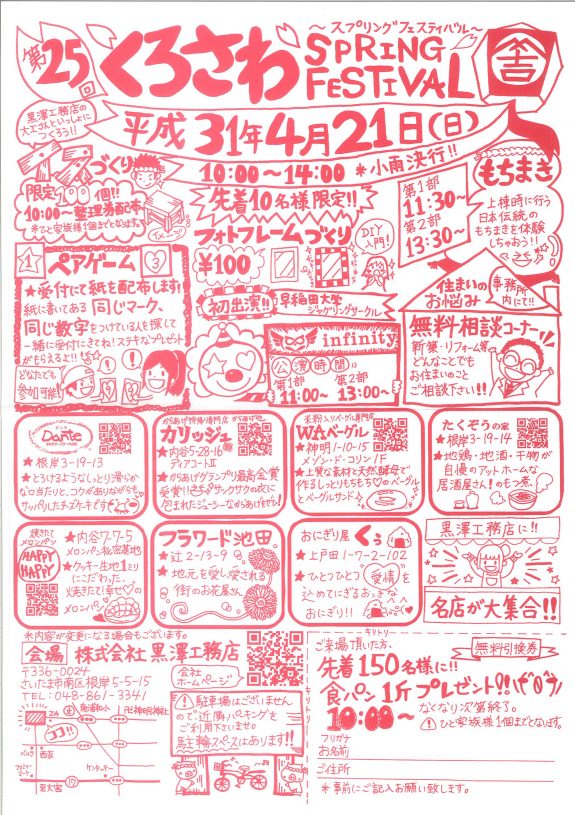 第25回
くろさわ
～スプリングフェスティバル～
SPRING
FESTIVAL
黒澤工務店の
大工さんといっしょに
つくろう!!
平成31年4月21日(日)
10:00～14:00 *小雨決行!!
づくり
限定100個!!
10:00～整理券配布
*ひと家族様1個までとなります。
先着10名様限定!!
フォトフレームづくり
¥100
DIY
入門!
第1部
11:30～
第2部
13:30～
もちまき
上棟時に行う
日本伝統の
もちまきを体験
しちゃおう!!
ペアゲーム
★受付にて紙を配布します!
紙に書いてある同じマーク、
同じ数字をつけている人を探して
一緒に受付にきてね!ステキなプレゼント
がもらえるよ!!
どなたでも
参加可能!
初出演!!
早稲田大学
ジャグリングサークル
infinity
公演時間
第1部 第2部
11:00～ 13:00～
住まいの
お悩み
事務所
内にて!!
無料相談コーナー
新築・リフォーム等
どんなことでも
お住まいのこと
ご相談下さい!!
Dante
★根岸3-19-13
★とろけるようなしっとり滑らか
な口当たりと、コクがありながらも
サッパリしたチーズケーキです
からあげ特揚げ専門店 からあげや
カリッジュ
★内谷5-28-16
ディアコートⅡ
★からあげグランプリ最高金賞
受賞!!サックサクの衣に
包まれたジューシーなからあげをぜひ!
米粉入りベーグル専門店
WAベーグル
★神明1-10-15
メゾンド・コリン1F
★上質な素材と天然酵母で
作るしっとりもちもち♡のベーグル
とベーグルサンド
たくぞうの家
★根岸3-19-14
★地鶏・地酒・干物が
自慢のアットホームな
居酒屋さん!のもつ煮
焼きたて
メロンパン
HAPPY
HAPPY
★内谷7-7-5
メロンパン移動販売基地
★クッキー生地1ミリ
にこだわった
焼きたて!幸せ♡の
メロンパン
フラワード池田。
★辻2-13-9
★地元を愛し愛される
街のお花屋さん
おにぎり屋
くぅ
★上戸田1-7-2-102
★ひとつひとつ愛情を
込めてにぎるおっきな
おにぎり!!
黒澤工務店に!!
名店が大集合!!
*内容が変更になる場合もございます。
会場 株式会社黒澤工務店
〒336-0024
さいたま市南区根岸5-5-15
TEL:048-861-3341
会社
ホームページ
南浦和小
卍神明神社
ココ!!
西友
ケンタッキー
17
至大宮
駐車場はございません
ので近隣パーキングを
ご利用下さいませ。
駐輪スペースはあります!!
キリトリ
キリトリ
ご来場頂いた方、
無料引換券
先着150名様に!!
食パン1斤プレゼント!!
10:00～
なくなり次第終了。
ひと家族様1個までとなります。
フリガナ
お名前
ご住所
*事前にご記入お願い致します。